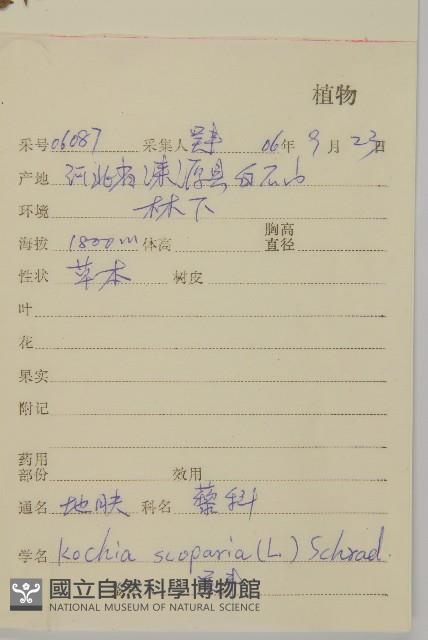 植物
采号 06087 采集人 06年 9月 23日
产地 河北省涞源县白石山
环境 林下
海拔 1800m 体高 胸高直径
性状 草本 树皮
叶
花
果实
附记
药用部份 效用
通名 地肤 科名 藜科
学名 Kochia scoparia (L.) Schrad.
國立自然科學博物館
NATIONAL MUSEUM OF NATURAL SCIENCE